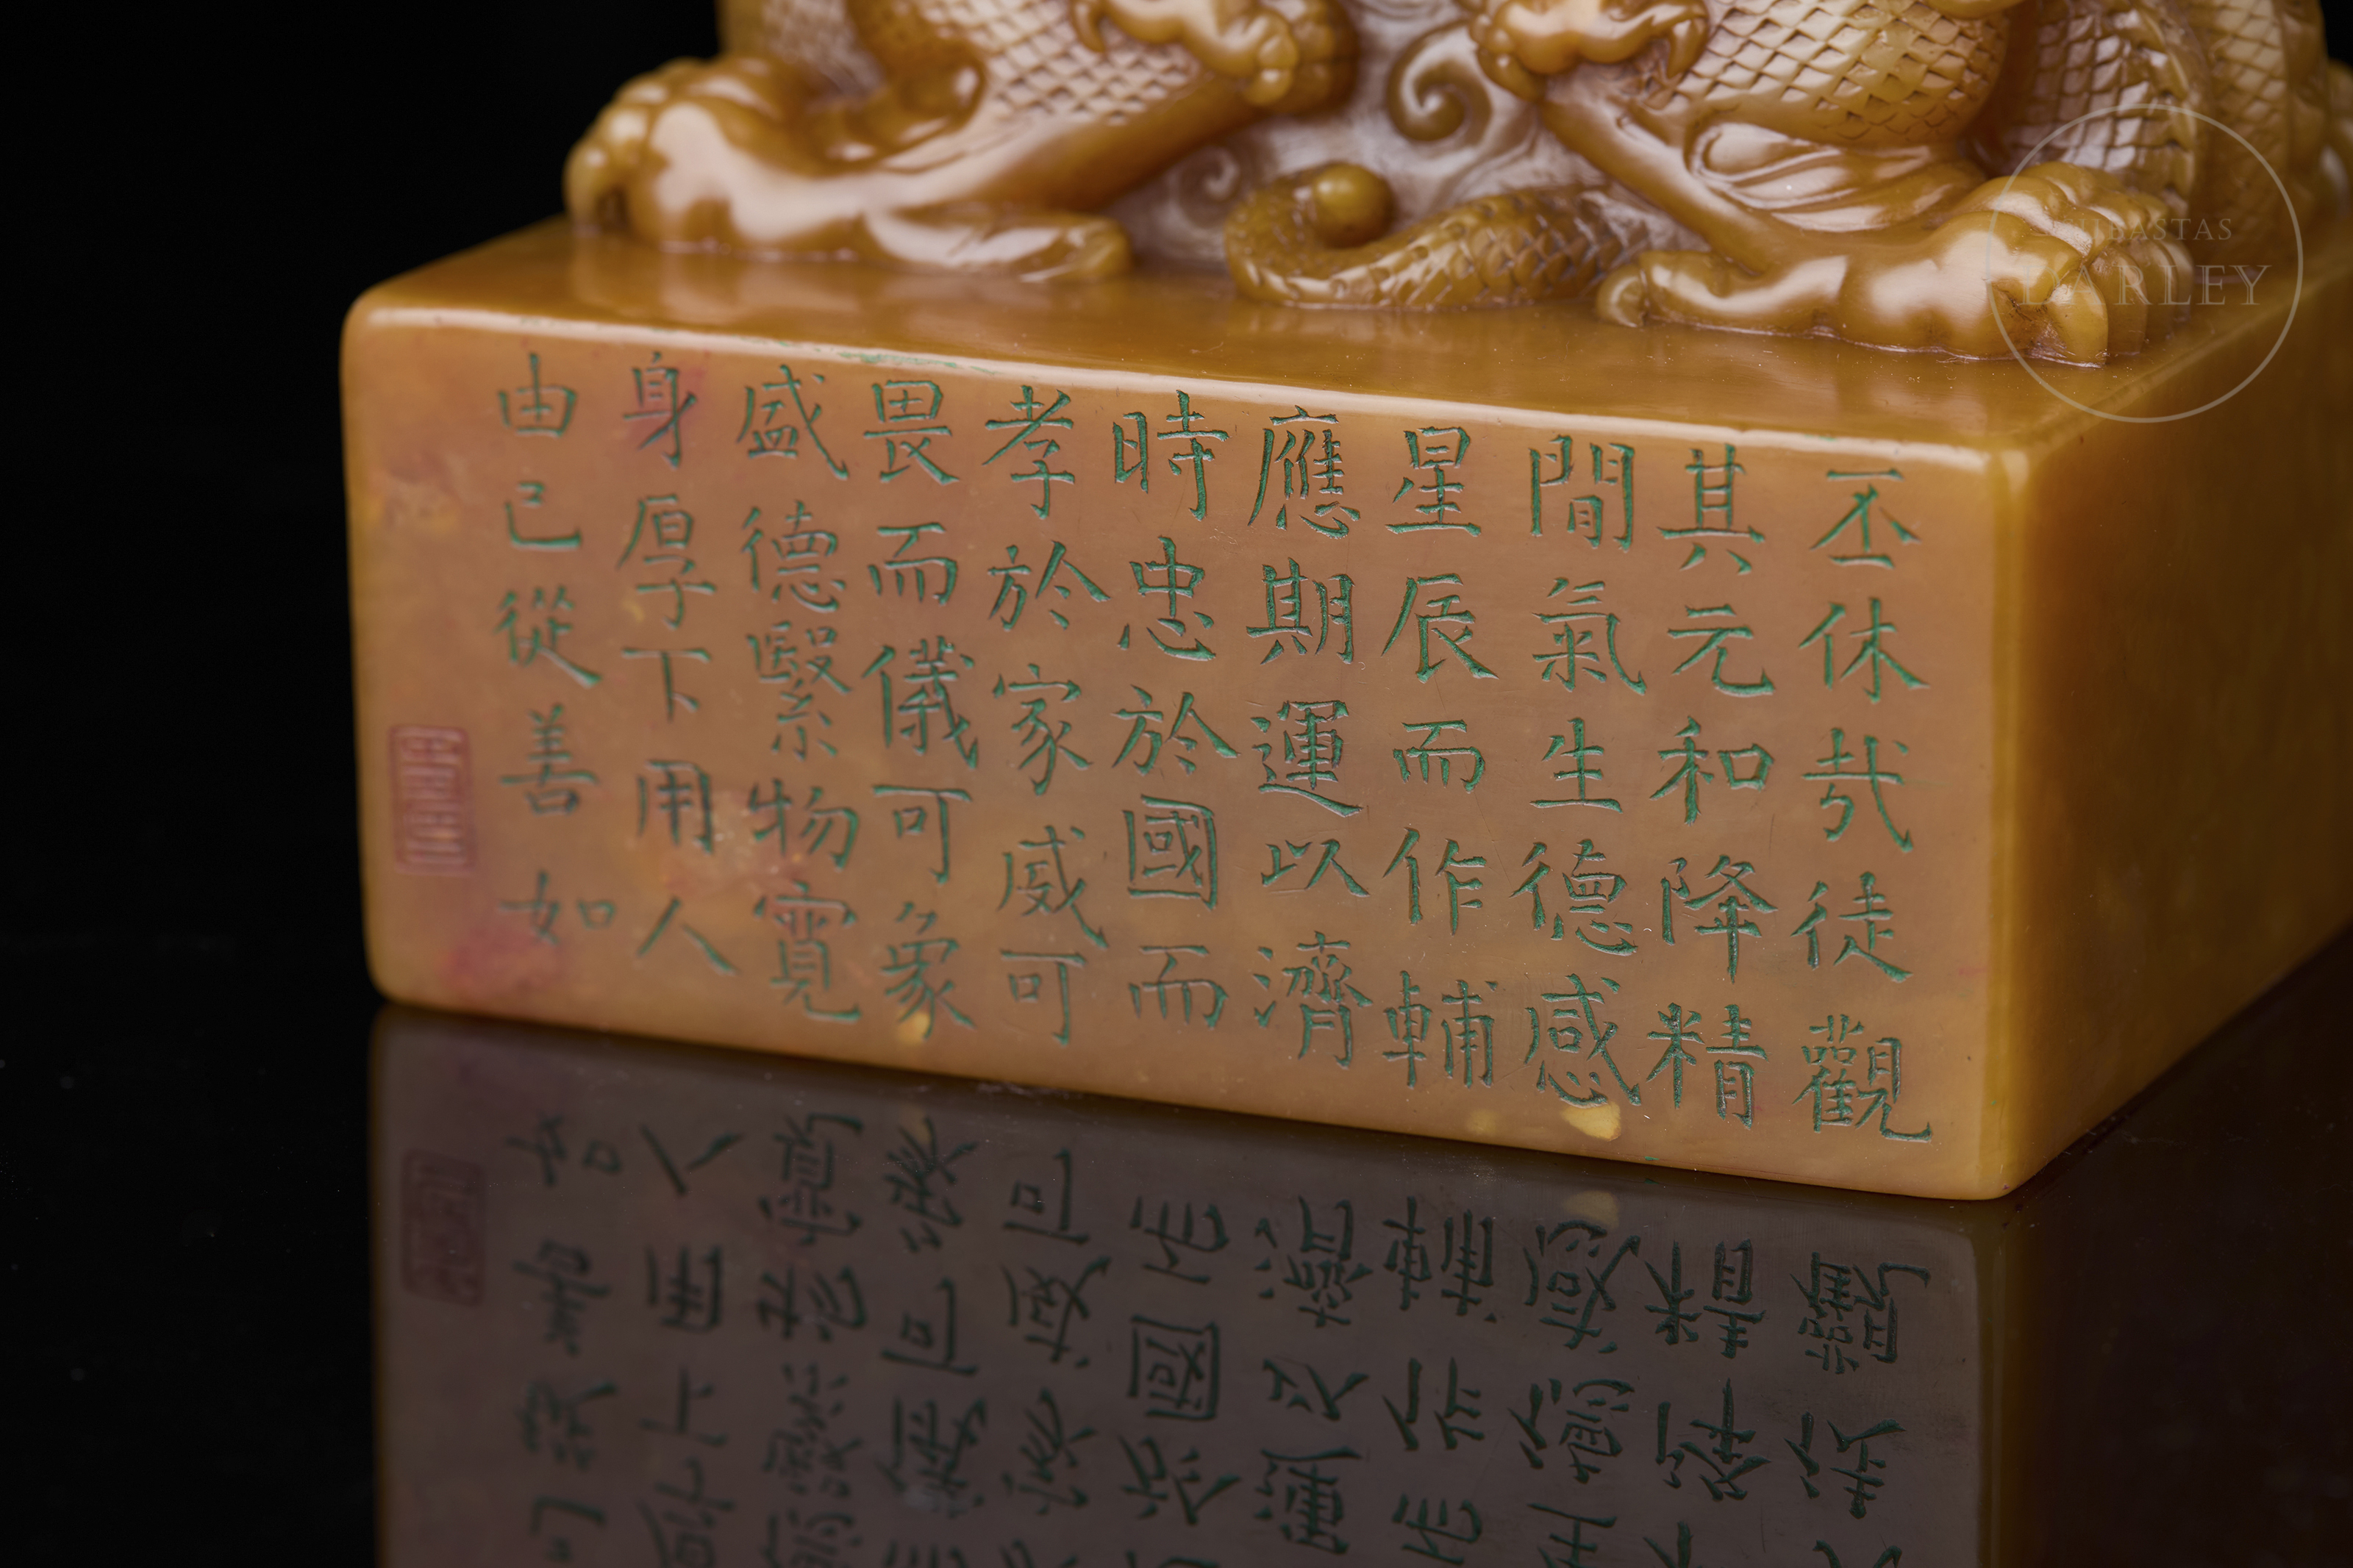 丕休哉徒觀
其元和降精
間氣生德感
星辰而作輔
應期運以濟
時忠於國而
孝於家威可
畏而儀可象
盛德緊物寬
身厚下用人
由己從善如
DARLEY